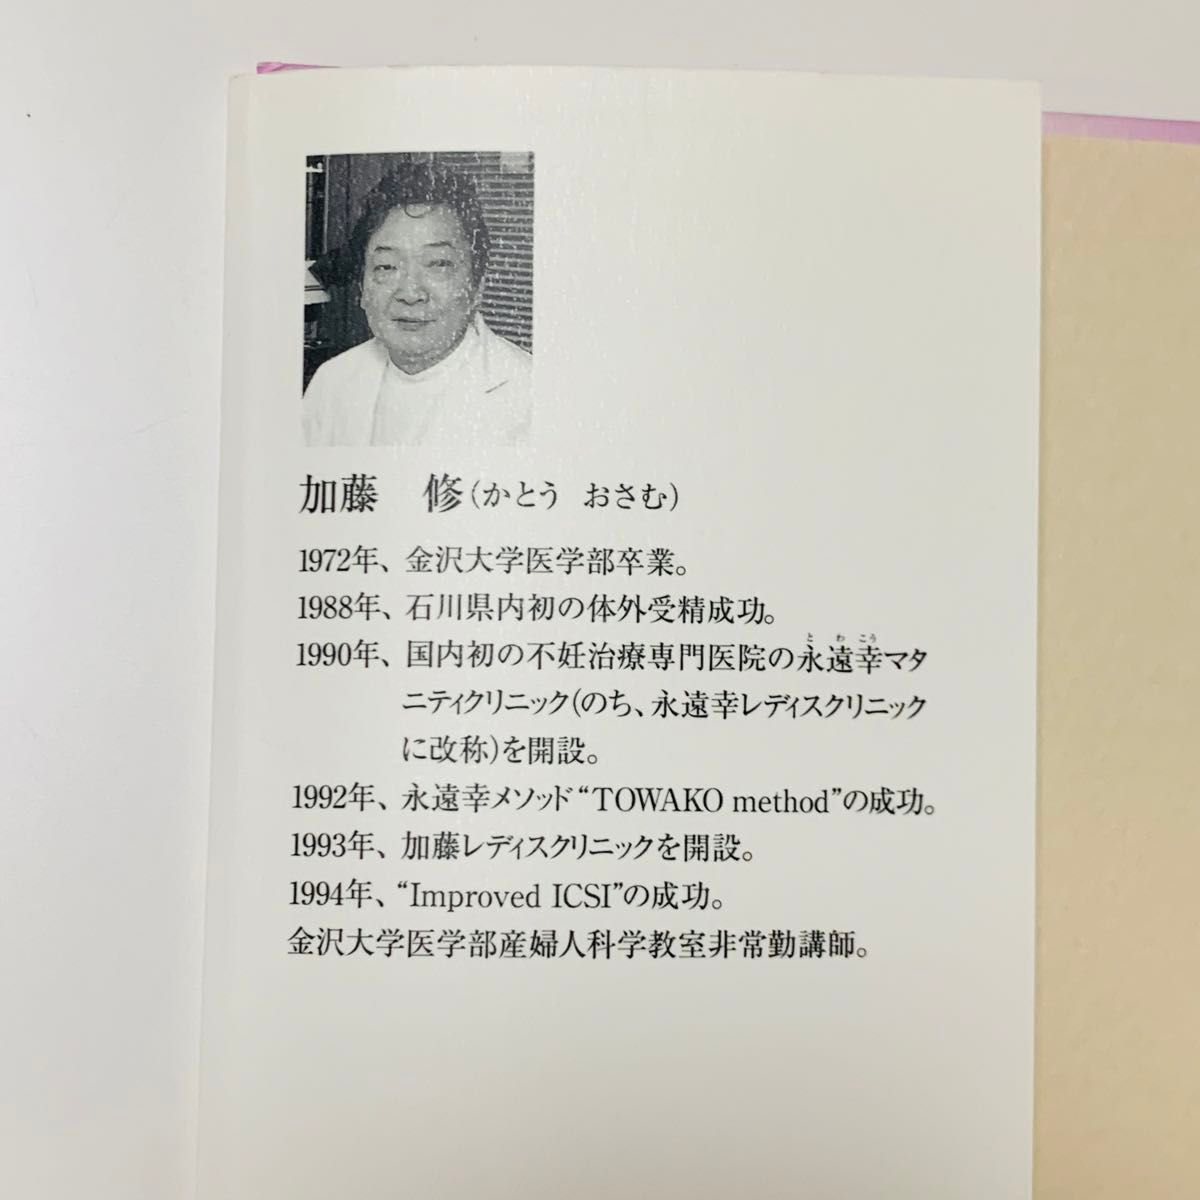 加藤　修(かとう　おさむ)
1972年、金沢大学医学部卒業。
1988年、石川県内初の体外受精成功。
とわこう
1990年、国内初の不妊治療専門医院の永遠幸マタ
ニティクリニック(のち、永遠幸レディスクリニック
に改称)を開設。
1992年、永遠幸メソッド“TOWAKO method”の成功。
1993年、加藤レディスクリニックを開設。
1994年、“Improved ICSI”の成功。
金沢大学医学部産婦人科学教室非常勤講師。